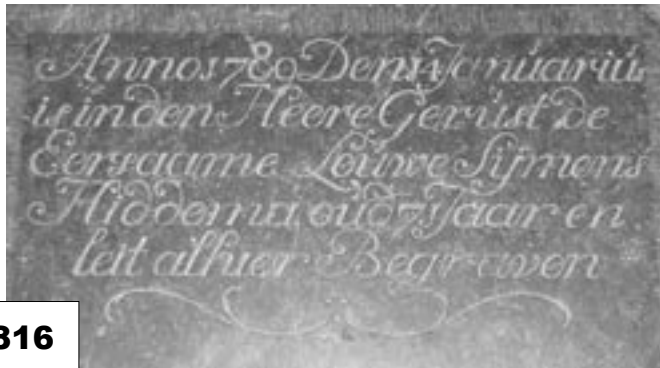 Anno 1780 Den 14 Januarius
is in den Heere Gerust de
Eersaame Louwe Sijmens
Hiddema oud 71 Jaar en
leit alhier Begraven
316